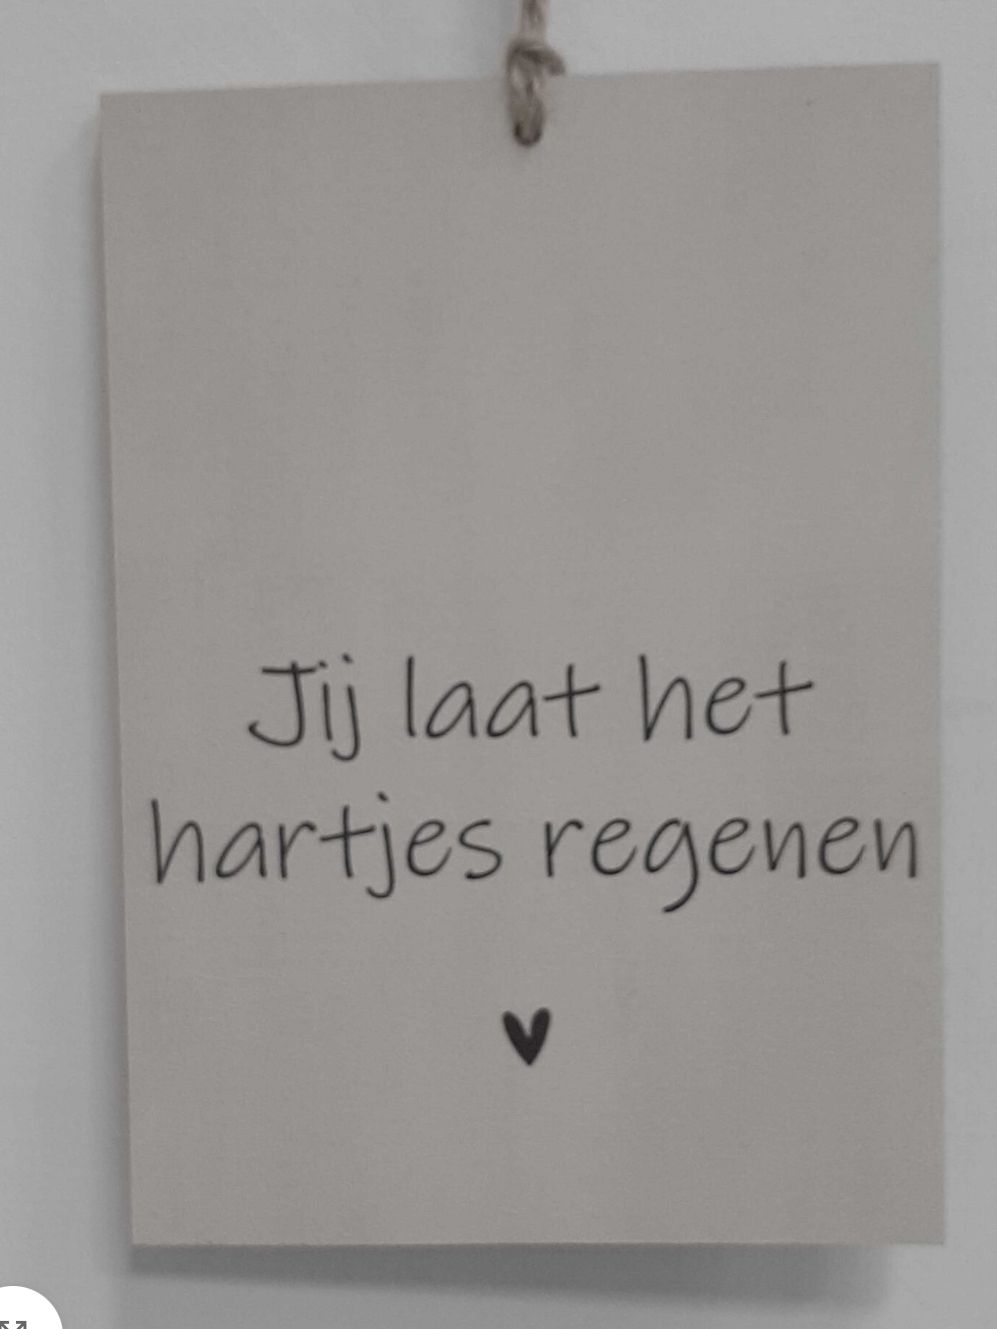 Jij laat het
hartjes regenen